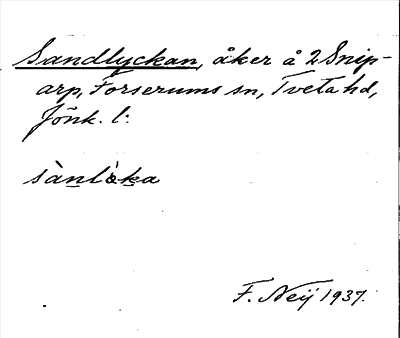 Sandlyckan, åker å 2 Snip-
arp, Forserums sn, Tveta hd,
Jönk. l:
sànlò̀ka
F. Neij 1937.